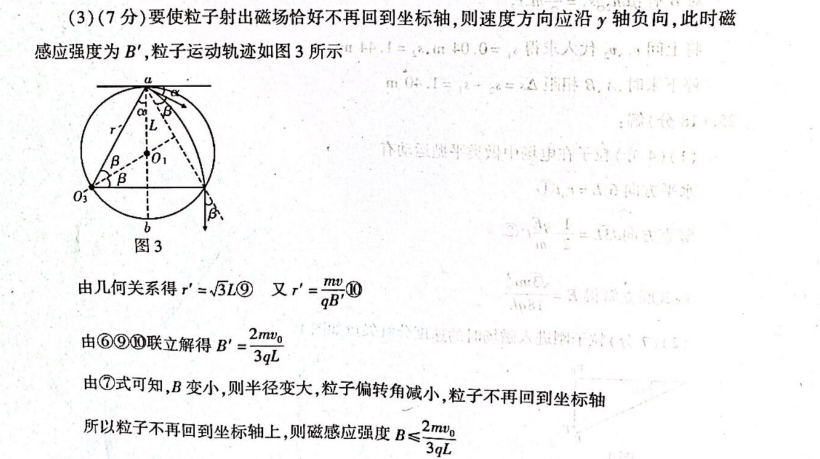 (3)(7分)要使粒子射出磁场恰好不再回到坐标轴,则速度方向应沿y轴负向,此时磁
感应强度为B′,粒子运动轨迹如图3所示
a
α
α β
r′ L
O₁
β
β
O₃
β
b
图3
由几何关系得r′=√3L⑨ 又r′=mv/qB′⑩
由⑥⑨⑩联立解得B′=2mv₀/3qL
由⑦式可知,B变小,则半径变大,粒子偏转角减小,粒子不再回到坐标轴
所以粒子不再回到坐标轴上,则磁感应强度B≤2mv₀/3qL